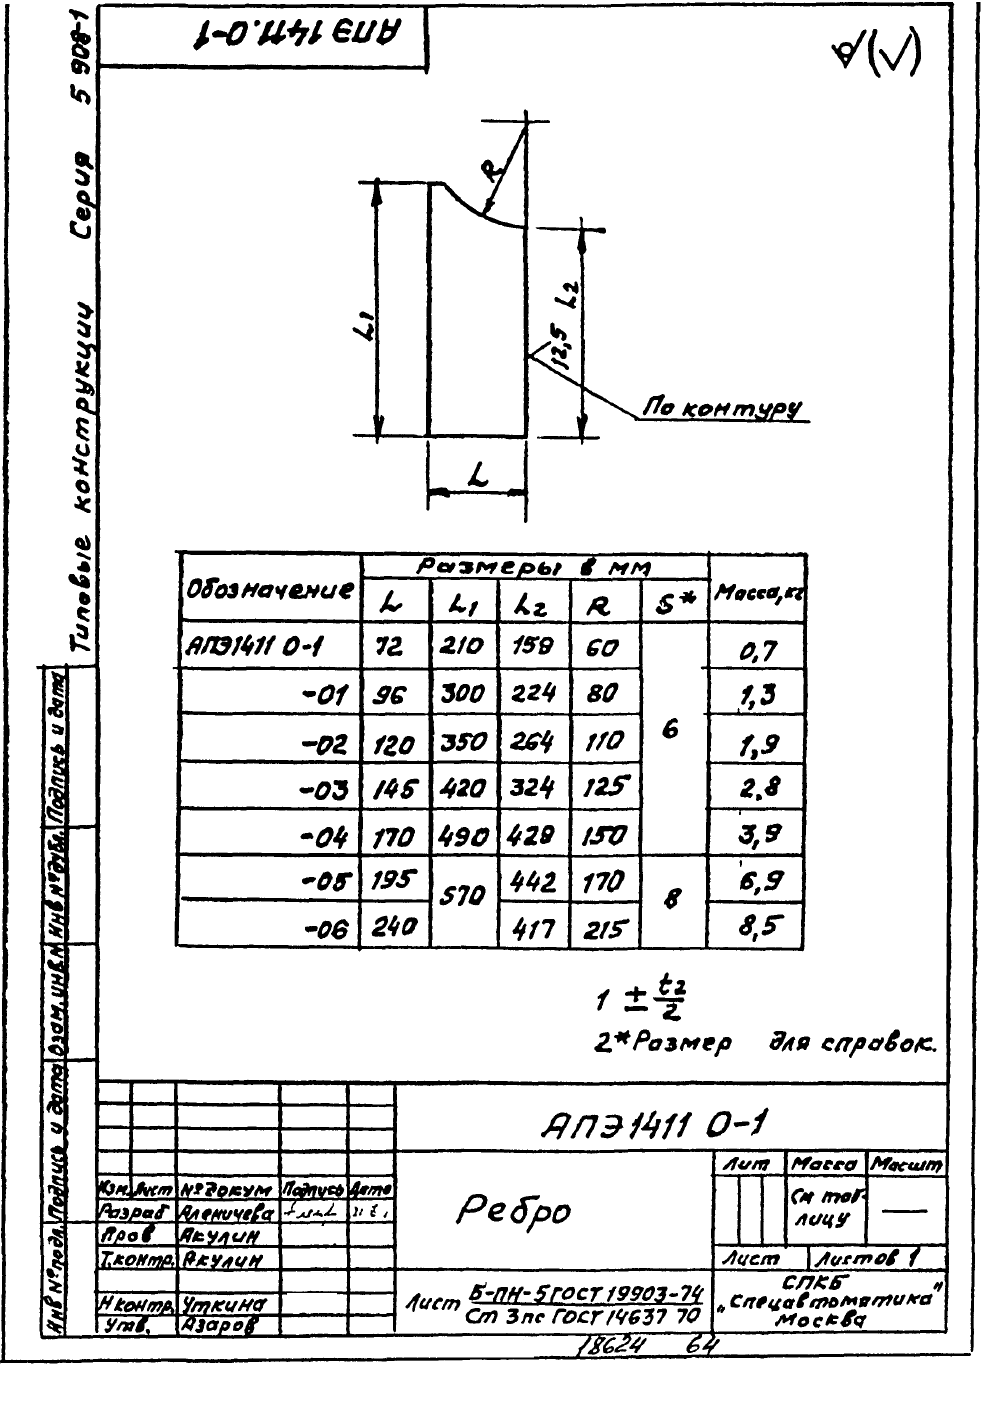 АПЭ 1411.0-1
Типовые конструкции Серия 5 908-1
R
L1
L2
12,5
По контуру
L
Обозначение Размеры в мм Масса,кг
L L1 L2 R S*
АПЭ1411 0-1 72 210 158 60 6 0,7
-01 96 300 224 80 1,3
-02 120 350 264 110 1,9
-03 145 420 324 125 2,8
-04 170 490 428 150 3,9
-05 195 570 442 170 8 6,9
-06 240 417 215 8,5
1 ± t2/2
2*Размер для справок.
Инв № подл. Подпись и дата Взам.инв.№ Инв № дубл. Подпись и дата
АПЭ1411 0-1
Изм. Лист № докум Подпись Дата
Разраб Аленичева
Пров Акулин
Т.контр. Акулин
Н контр. Уткина
Утв. Азаров
Ребро
Лит Масса Масшт
См таб-
лицу —
Лист Листов 1
Лист Б-ПН-5 ГОСТ 19903-74
Ст 3пс ГОСТ 14637 70
СПКБ
„Спецавтоматика"
Москва
18624 64